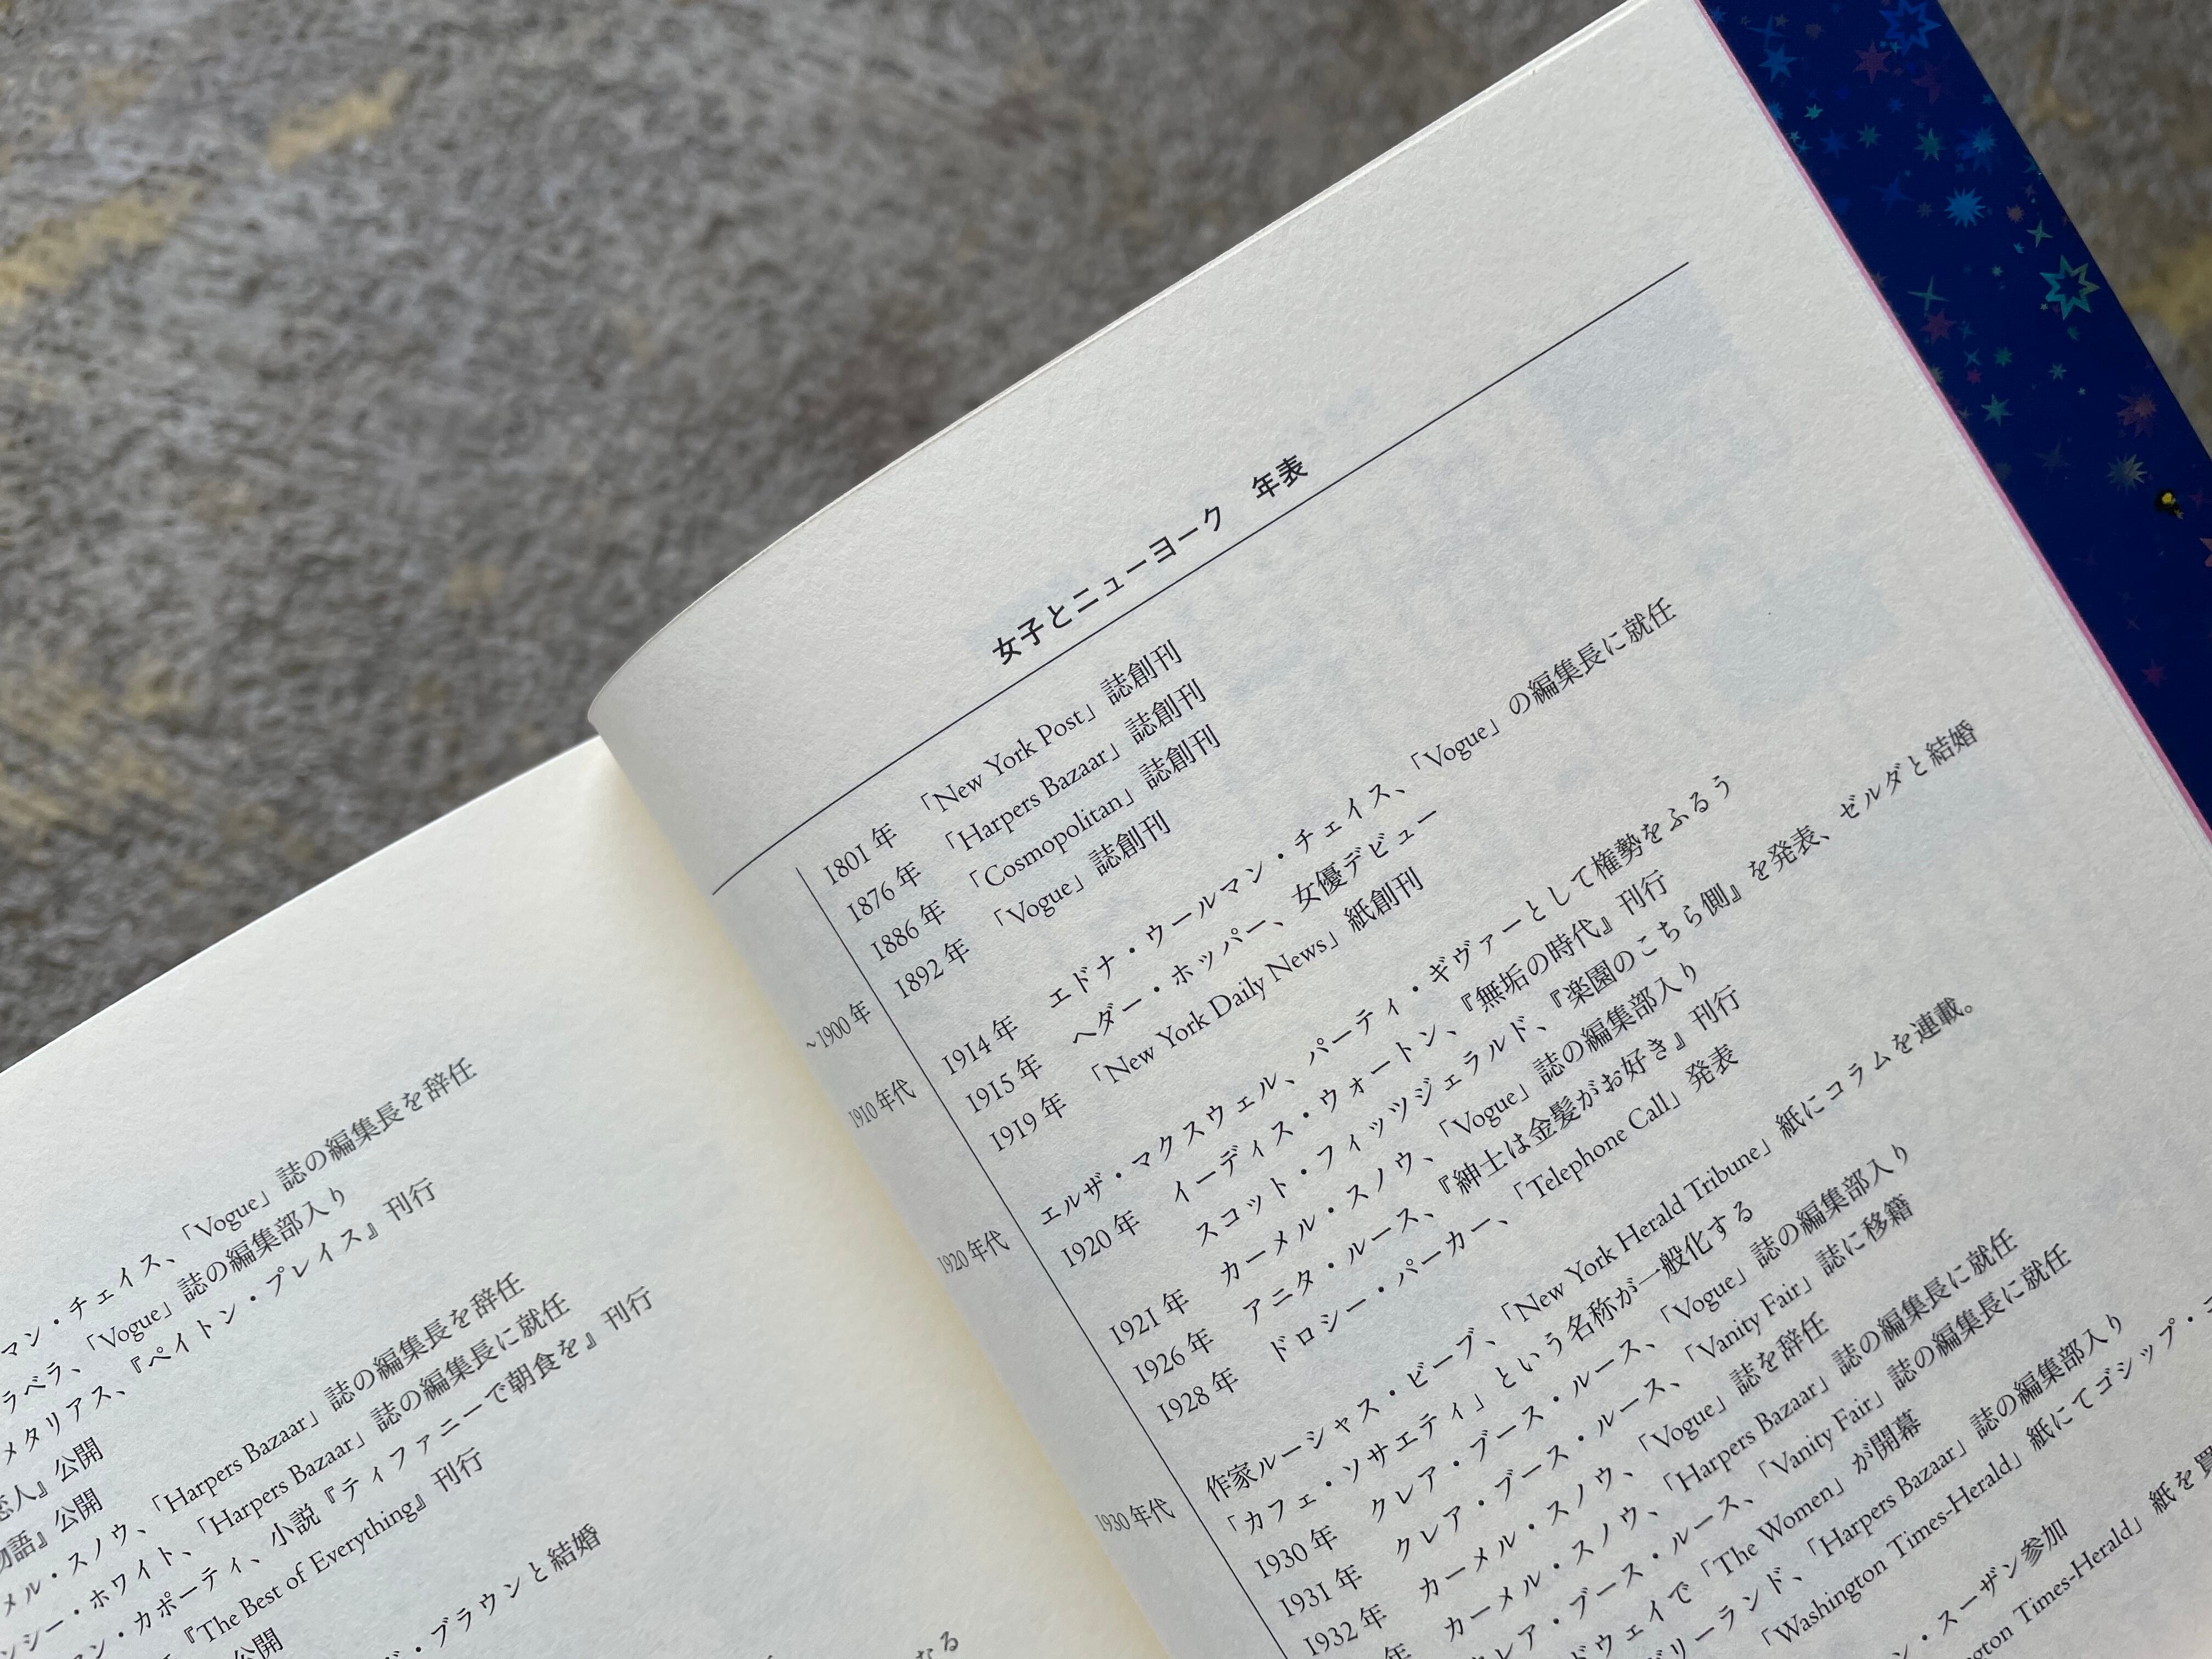 女子とニューヨーク 年表
~1900年
1801年 「New York Post」誌創刊
1876年 「Harpers Bazaar」誌創刊
1886年 「Cosmopolitan」誌創刊
1892年 「Vogue」誌創刊
1910年代
1914年 エドナ・ウールマン・チェイス、「Vogue」の編集長に就任
1915年 ヘダー・ホッパー、女優デビュー
1919年 「New York Daily News」紙創刊
1920年代
エルザ・マクスウェル、パーティ・ギヴァーとして権勢をふるう
1920年 イーディス・ウォートン、『無垢の時代』刊行
スコット・フィッツジェラルド、『楽園のこちら側』を発表、ゼルダと結婚
1921年 カーメル・スノウ、「Vogue」誌の編集部入り
1926年 アニタ・ルース、『紳士は金髪がお好き』刊行
1928年 ドロシー・パーカー、「Telephone Call」発表
1930年代
作家ルーシャス・ビーブ、「New York Herald Tribune」紙にコラムを連載。
「カフェ・ソサエティ」という名称が一般化する
1930年 クレア・ブース・ルース、「Vogue」誌の編集部入り
1931年 クレア・ブース・ルース、「Vanity Fair」誌に移籍
1932年 カーメル・スノウ、「Vogue」誌を辞任
年 カーメル・スノウ、「Harpers Bazaar」誌の編集長に就任
レア・ブース・ルース、「Vanity Fair」誌の編集長に就任
ドウェイで「The Women」が開幕
ブリーランド、「Harpers Bazaar」誌の編集部入り
「Washington Times-Herald」紙にてゴシップ・
ン・スーザン参加
ngton Times-Herald」紙を買
マン・チェイス、「Vogue」誌の編集長を辞任
ラベラ、「Vogue」誌の編集部入り
メタリアス、『ペイトン・プレイス』刊行
恋人』公開
物語』公開
メル・スノウ、「Harpers Bazaar」誌の編集長を辞任
ンシー・ホワイト、「Harpers Bazaar」誌の編集長に就任
マン・カポーティ、小説『ティファニーで朝食を』刊行
『The Best of Everything』刊行
公開
ド・ブラウンと結婚
なる